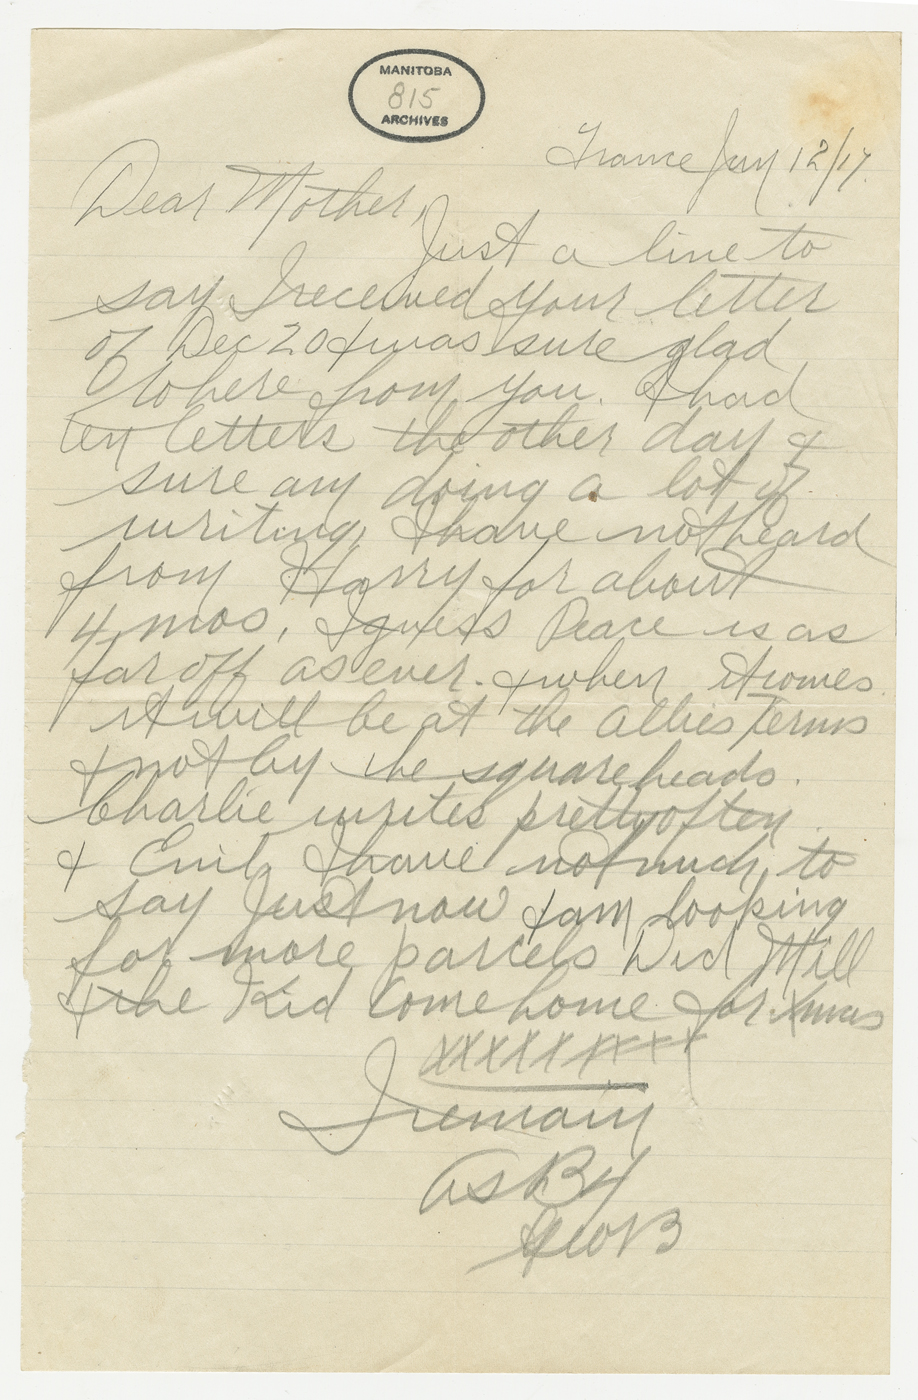 MANITOBA
815
ARCHIVES
France Jan 12/17.
Dear Mother,
Just a line to
say I received your letter
of Dec 20 & was sure glad
to here from you. I had
ten letters the other day &
sure am doing a lot of
writing, I have not heard
from Harry for about
4 mos, I guess Peace is as
far off as ever. & when it comes
it will be at the Allies Terms
& not by the squareheads.
Charlie writes pretty often
& Emil, I have not much to
say Just now & am looking
for more parcels Did Mill
& the Kid Come home for Xmas
xxxxxxxxxx
I remain
as B4
Geo B